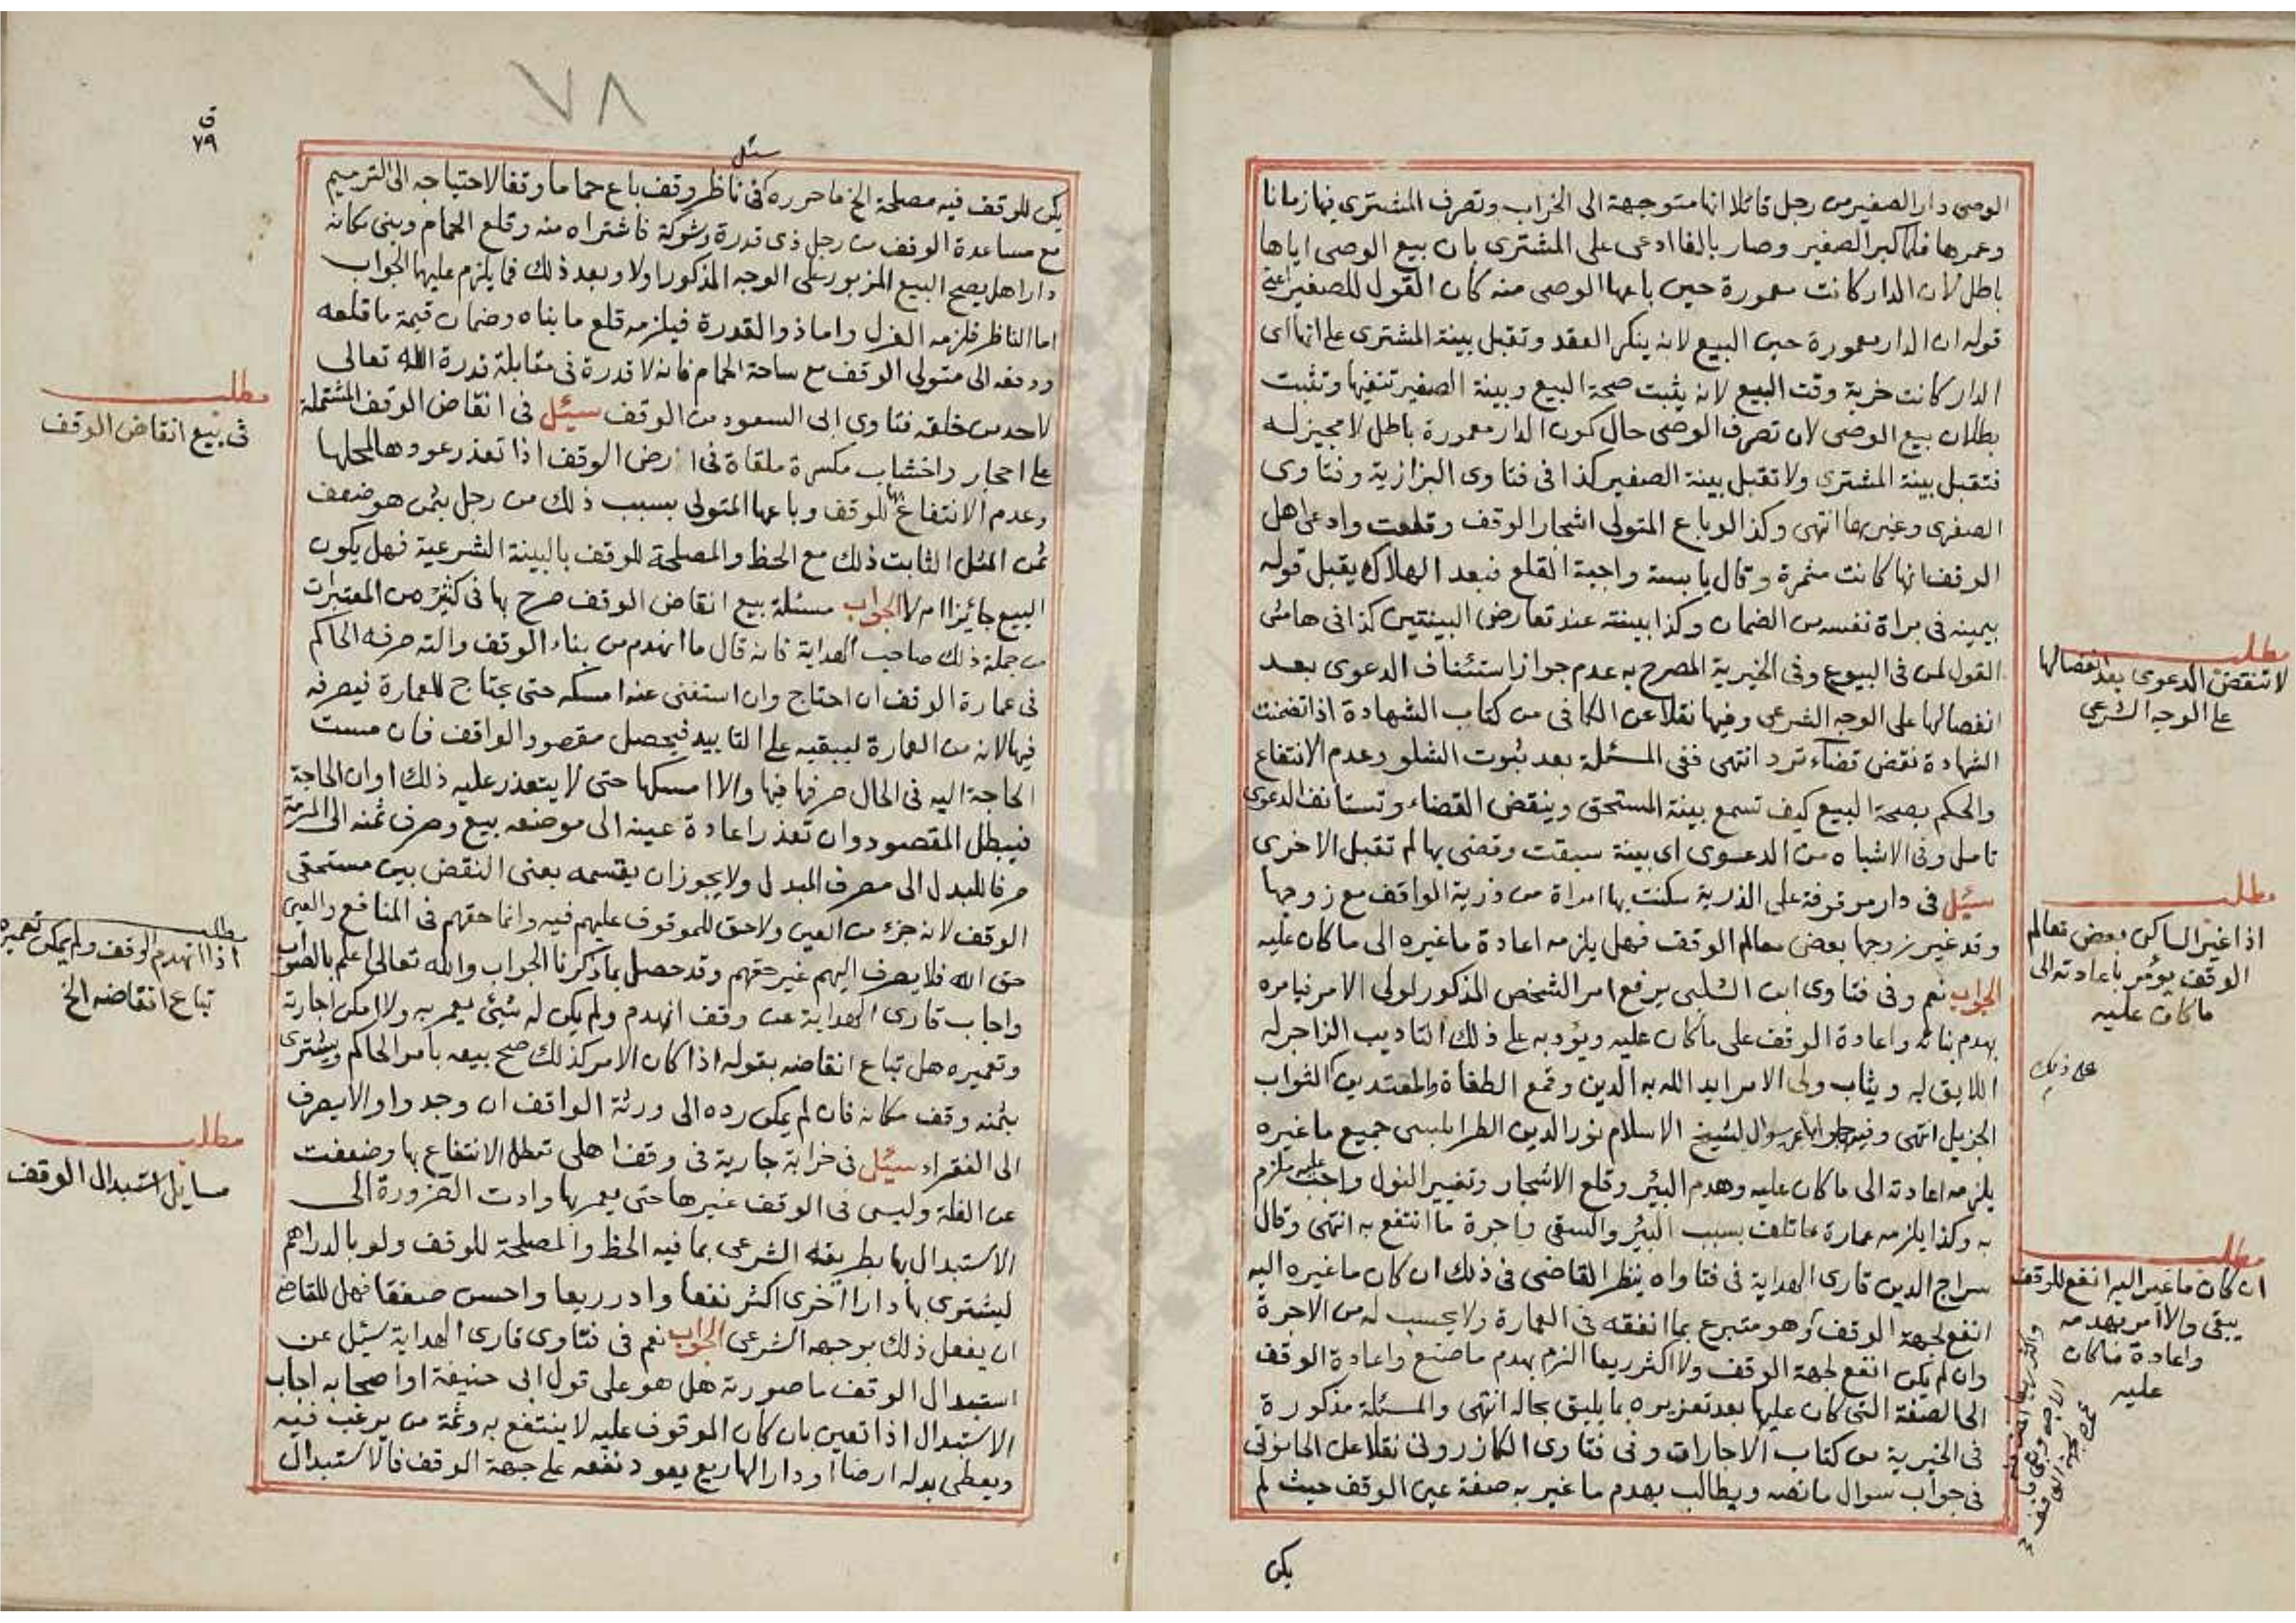 الوصى دار الصغير من رجل قائلا انها متوجهة الى الخراب وتصرف المشترى فيها زمانا
وعمرها فلما كبر الصغير وصار بالغا ادعى على المشترى بان بيع الوصى اياها
باطل لان الدار كانت معمورة حين باعها الوصى منه كان القول للصغير اعنى
قوله ان الدار معمورة حين البيع لانه ينكر العقد وتقبل بينة المشترى على انها اى
الدار كانت خربة وقت البيع لانه يثبت صحة البيع وبينة الصغير تنفيها وتثبت
بطلان بيع الوصى لان تصرف الوصى حال كون الدار معمورة باطل لا مجيز له
فتقبل بينة المشترى ولا تقبل بينة الصغير كذا فى فتاوى البزازية وفتاوى
الصغرى وغيرها انتهى وكذا لو باع المتولى اشجار الوقف وقلعت وادعى اهل
الوقف انها كانت مثمرة وقال يابسة واجبة القلع فبعد الهلاك يقبل قوله
بيمينه فى براة نفسه من الضمان وكذا بينته عند تعارض البينتين كذا فى هامش
القول لمن فى البيوع وفى الخيرية المصرح به عدم جواز استئناف الدعوى بعد
انفصالها على الوجه الشرعى وفيها نقلا عن الكافى من كتاب الشهادة اذا تضمنت
الشهادة نقض قضاء ترد انتهى ففى المسئلة بعد ثبوت الشلو وعدم الانتفاع
والحكم بصحة البيع كيف تسمع بينة المستحق وينقض القضاء وتستانف الدعوى
تامل وفى الاشباه من الدعوى اى بينة سبقت وقضى بها لم تقبل الاخرى
سئل فى دار موقوفة على الذرية سكنت بها امراة من ذرية الواقف مع زوجها
وقد غير زوجها بعض معالم الوقف فهل يلزمه اعادة ما غيره الى ما كان عليه
الجواب نعم وفى فتاوى ابن الشلبى يرفع امر الشخص المذكور لولى الامر فيامره
بهدم بنائه واعادة الوقف على ما كان عليه ويؤدبه على ذلك التاديب الزاجر له
اللايق به ويثاب ولى الامر ايد الله به الدين وقمع الطغاة والمعتدين الثواب
الجزيل انتهى وفيه جوابا عن سوال لشيخ الاسلام نور الدين الطرابلسى جميع ما غيره
يلزمه اعادته الى ما كان عليه وهدم البئر وقلع الاشجار وتغيير النول واجب عليه ملزم
به وكذا يلزمه عمارة ما تلف بسبب البئر والسقى واجرة ما انتفع به انتهى وقال
سراج الدين قارى الهداية فى فتاواه ينظر القاضى فى ذلك ان كان ما غيره اليه
انفع لجهة الوقف وهو متبرع بما انفقه فى العمارة ولا يحسب له من الاجرة
وان لم يكن انفع لجهة الوقف ولا اكثر ريعا الزم بهدم ما صنع واعادة الوقف
الى الصفة التى كان عليها بعد تعزيره بما يليق بحاله انتهى والمسئلة مذكورة
فى الخيرية من كتاب الاجارات وفى فتاوى الكازرونى نقلا عن الحانوتى
فى جواب سوال ما نصه ويطالب بهدم ما غير به صفة عين الوقف حيث لم
يكن
مطلب
لا تنقض الدعوى بعد انفصالها
على الوجه الشرعى
مطلب
اذا غير الساكن بعض معالم
الوقف يؤمر باعادته الى
ما كان عليه
على ذلك
مطلب
ان كان ما غير اليه انفع للوقف
يبقى والا امر بهدمه
واعادة ما كان
عليه
٧٨
ق
٧٩
سئل
يكن للوقف فيه مصلحة الخ ما حرره فى ناظر وقف باع حماما وقفا لاحتياجه الى الترميم
مع مساعدة الوقف من رجل ذى قدرة وشوكة فاشتراه منه وقلع الحمام وبنى مكانه
دارا هل يصح البيع المزبور على الوجه المذكور اولا وبعد ذلك فما يلزم عليهما الجواب
اما الناظر فلزمه العزل واما ذو القدرة فيلزمه قلع ما بناه وضمان قيمة ما قلعه
ودفعه الى متولى الوقف مع ساحة الحمام فانه لا قدرة فى مقابلة قدرة الله تعالى
لاحد من خلقه فتاوى ابى السعود من الوقف سئل فى انقاض الوقف المشتملة
على احجار واخشاب مكسرة ملقاة فى ارض الوقف اذا تعذر عودها لمحلها
وعدم الانتفاع بها للوقف وباعها المتولى بسبب ذلك من رجل بثمن هو ضعف
ثمن المثل الثابت ذلك مع الحظ والمصلحة للوقف بالبينة الشرعية فهل يكون
البيع جائزا ام لا الجواب مسئلة بيع انقاض الوقف صرح بها فى كثير من المعتبرات
من جملة ذلك صاحب الهداية فانه قال ما انهدم من بناء الوقف والته صرفه الحاكم
فى عمارة الوقف ان احتاج وان استغنى عنه امسكه حتى يحتاج للعمارة فيصرفه
فيها لانه من العمارة ليبقيه على التابيد فيحصل مقصود الواقف فان مست
الحاجة اليه فى الحال صرفها فيها والا امسكها حتى لا يتعذر عليه ذلك اوان الحاجة
فيبطل المقصود وان تعذر اعادة عينه الى موضعه بيع وصرف ثمنه الى المرمة
صرفا للبدل الى مصرف المبدل ولا يجوز ان يقسمه يعنى النقض بين مستحقى
الوقف لانه جزء من العين ولا حق للموقوف عليهم فيه وانما حقهم فى المنافع والعين
حق الله فلا يصرف اليهم غير حقهم وقد حصل بما ذكرنا الجواب والله تعالى اعلم بالصواب
واجاب قارى الهداية عن وقف انهدم ولم يكن له شيئ يعمر به ولا امكن اجارته
وتعميره هل تباع انقاضه بقوله اذا كان الامر كذلك صح بيعه بامر الحاكم ويشترى
بثمنه وقف مكانه فان لم يمكن رده الى ورثة الواقف ان وجدوا والا يصرف
الى الفقراء سئل فى خرابة جارية فى وقف اهلى تعطل الانتفاع بها وضعفت
عن الغلة وليس فى الوقف غيرها حتى يعمر بها وادت الضرورة الى
الاستبدال بها بطريقه الشرعى بما فيه الحظ والمصلحة للوقف ولو بالدراهم
ليشترى بها دارا اخرى اكثر نفعا وادر ريعا واحسن صفقا فهل للقاضى
ان يفعل ذلك بوجهه الشرعى الجواب نعم فى فتاوى قارى الهداية سئل عن
استبدال الوقف ما صورته هل هو على قول ابى حنيفة او اصحابه اجاب
الاستبدال اذا تعين بان كان الموقوف عليه لا ينتفع به وثمة من يرغب فيه
ويعطى بدله ارضا او دارا لها ريع يعود نفعه على جهة الوقف فالاستبدال
مطلب
فى بيع انقاض الوقف
مطلب
اذا انهدم الوقف ولم يمكن تعميره
تباع انقاضه الخ
مطلب
مسايل استبدال الوقف